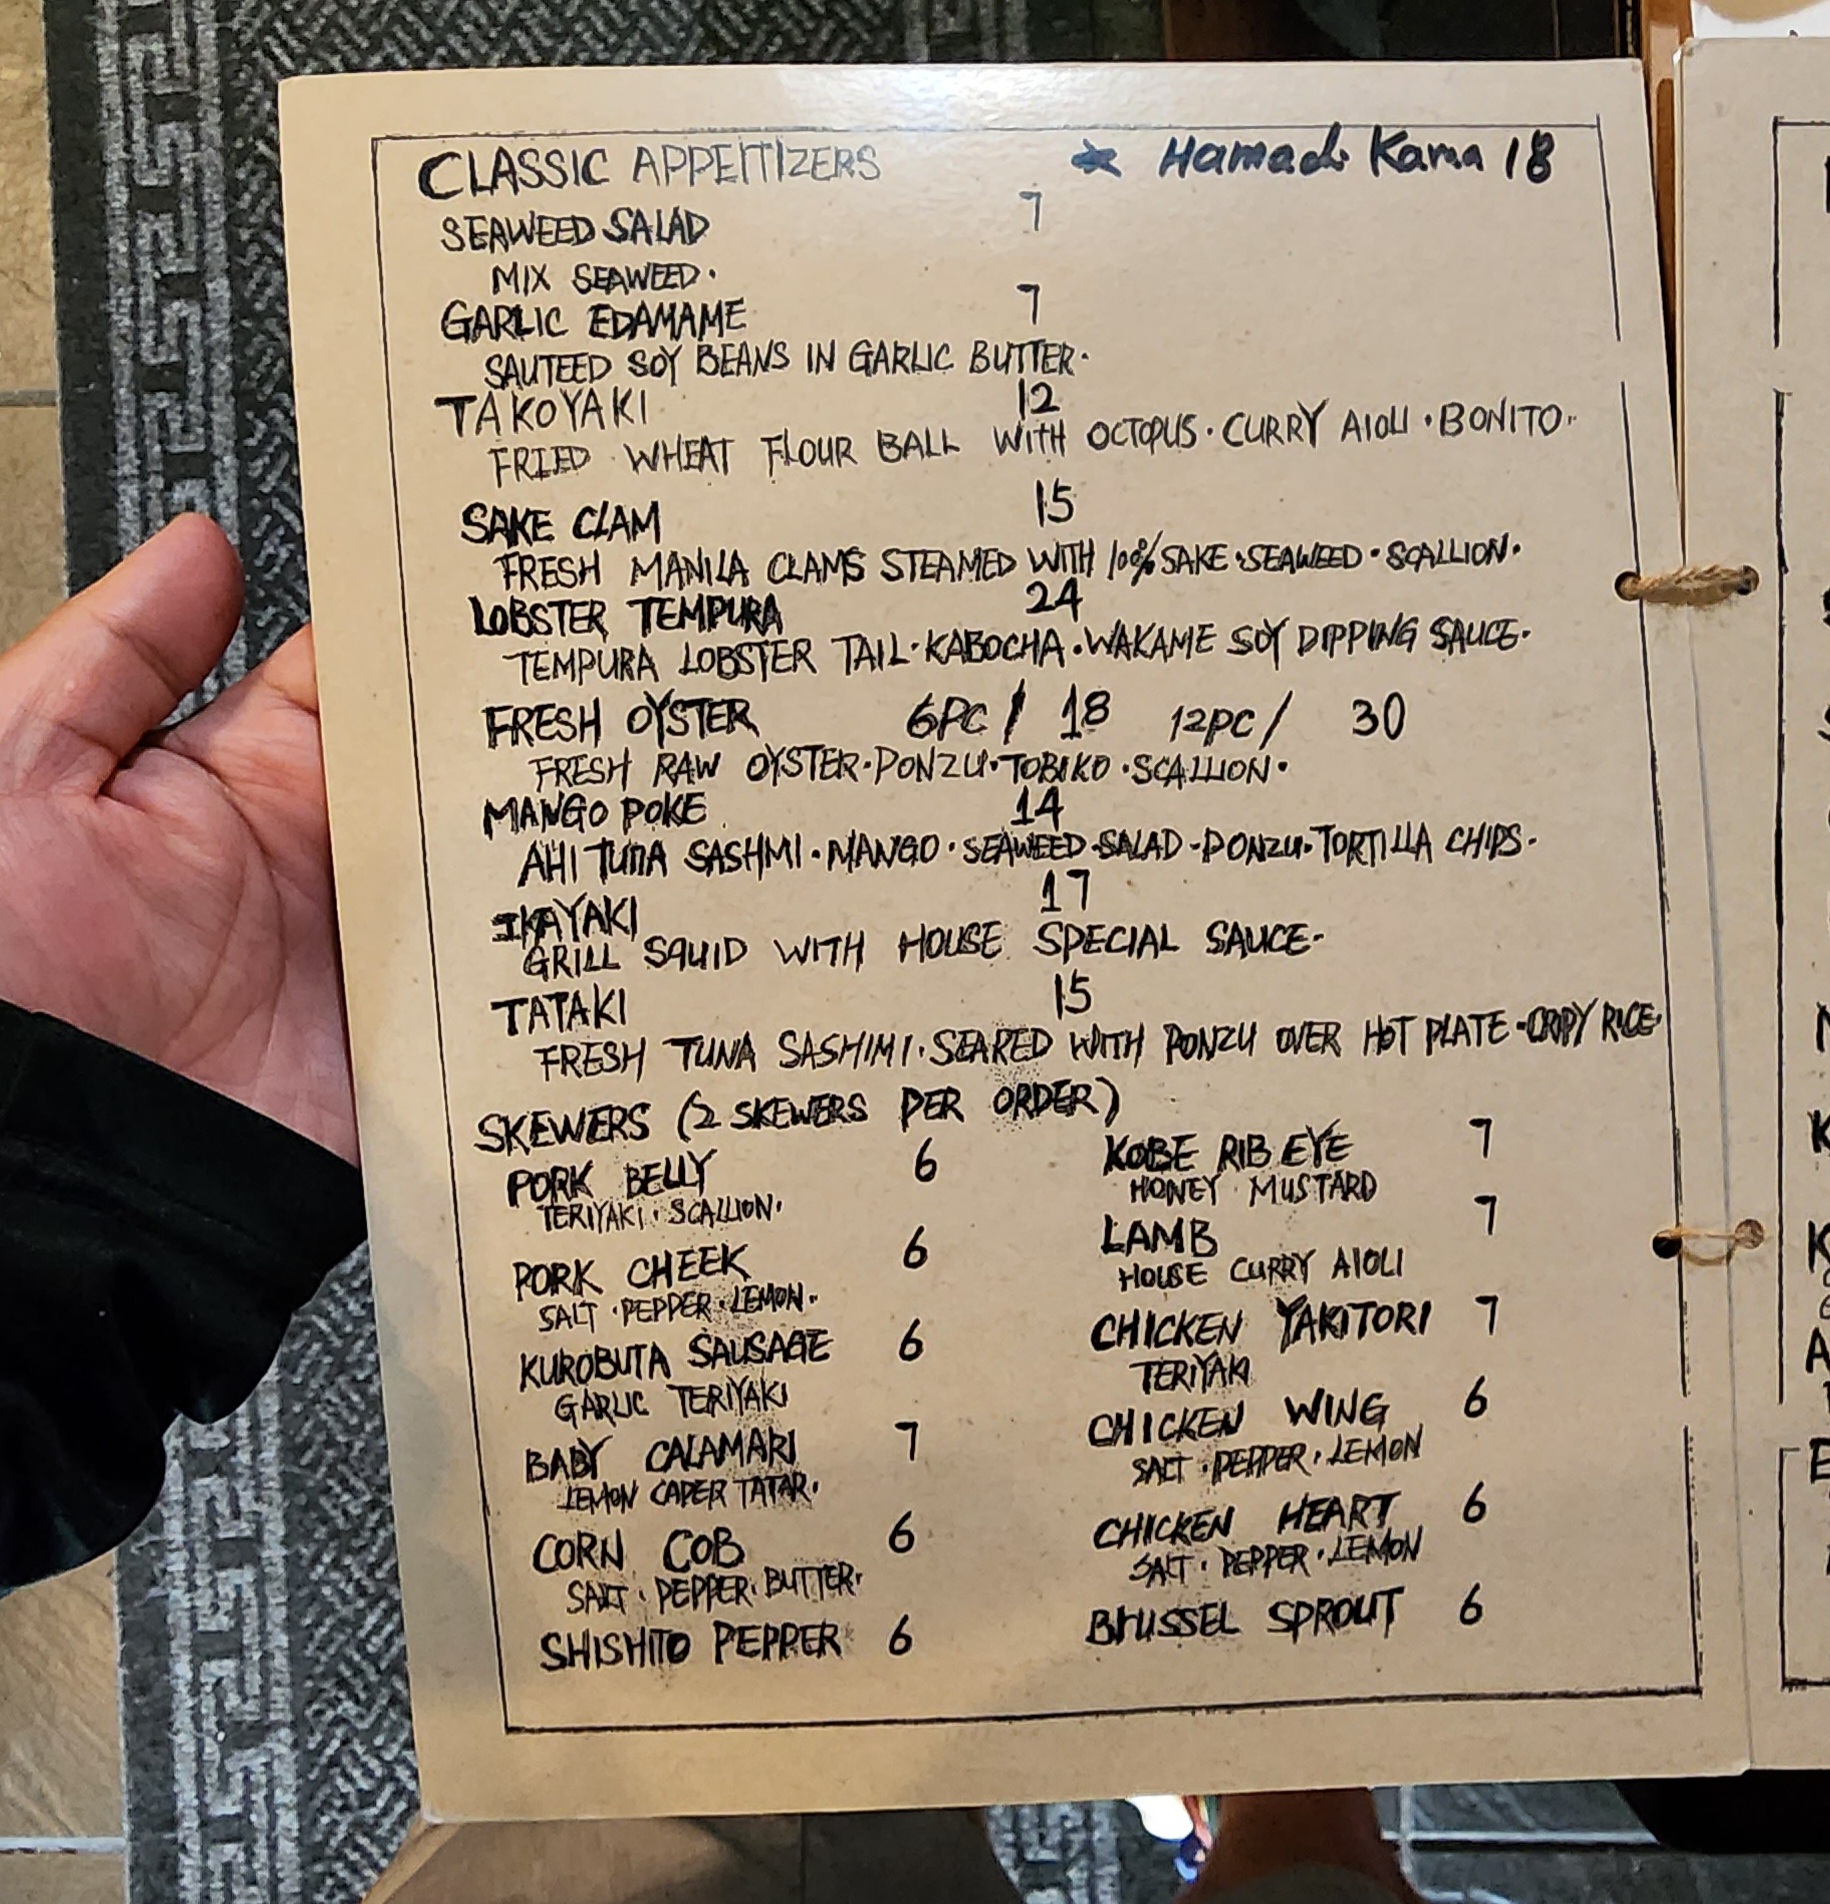 CLASSIC APPEITIZERS ★ Hamachi Kama 18
SEAWEED SALAD 7
MIX SEAWEED.
GARLIC EDAMAME 7
SAUTEED SOY BEANS IN GARLIC BUTTER.
TAKOYAKI 12
FRIED WHEAT FLOUR BALL WITH OCTOPUS · CURRY AIOLI · BONITO.
SAKE CLAM 15
FRESH MANILA CLAMS STEAMED WITH 100% SAKE · SEAWEED · SCALLION.
LOBSTER TEMPURA 24
TEMPURA LOBSTER TAIL · KABOCHA · WAKAME SOY DIPPING SAUCE.
FRESH OYSTER 6PC / 18 12PC / 30
FRESH RAW OYSTER · PONZU · TOBIKO · SCALLION.
MANGO POKE 14
AHI TUNA SASHMI · MANGO · SEAWEED SALAD · PONZU · TORTILLA CHIPS.
IKAYAKI 17
GRILL SQUID WITH HOUSE SPECIAL SAUCE.
TATAKI 15
FRESH TUNA SASHIMI · SEARED WITH PONZU OVER HOT PLATE · CRIPY RICE.
SKEWERS (2 SKEWERS PER ORDER)
PORK BELLY 6
TERIYAKI · SCALLION.
PORK CHEEK 6
SALT · PEPPER · LEMON.
KUROBUTA SAUSAGE 6
GARLIC TERIYAKI
BABY CALAMARI 7
LEMON CAPER TATAR.
CORN COB 6
SALT · PEPPER · BUTTER.
SHISHITO PEPPER 6
KOBE RIB EYE 7
HONEY MUSTARD
LAMB 7
HOUSE CURRY AIOLI
CHICKEN YAKITORI 7
TERIYAKI
CHICKEN WING 6
SALT · PEPPER · LEMON
CHICKEN HEART 6
SALT · PEPPER · LEMON
BrUSSEL SPROUT 6